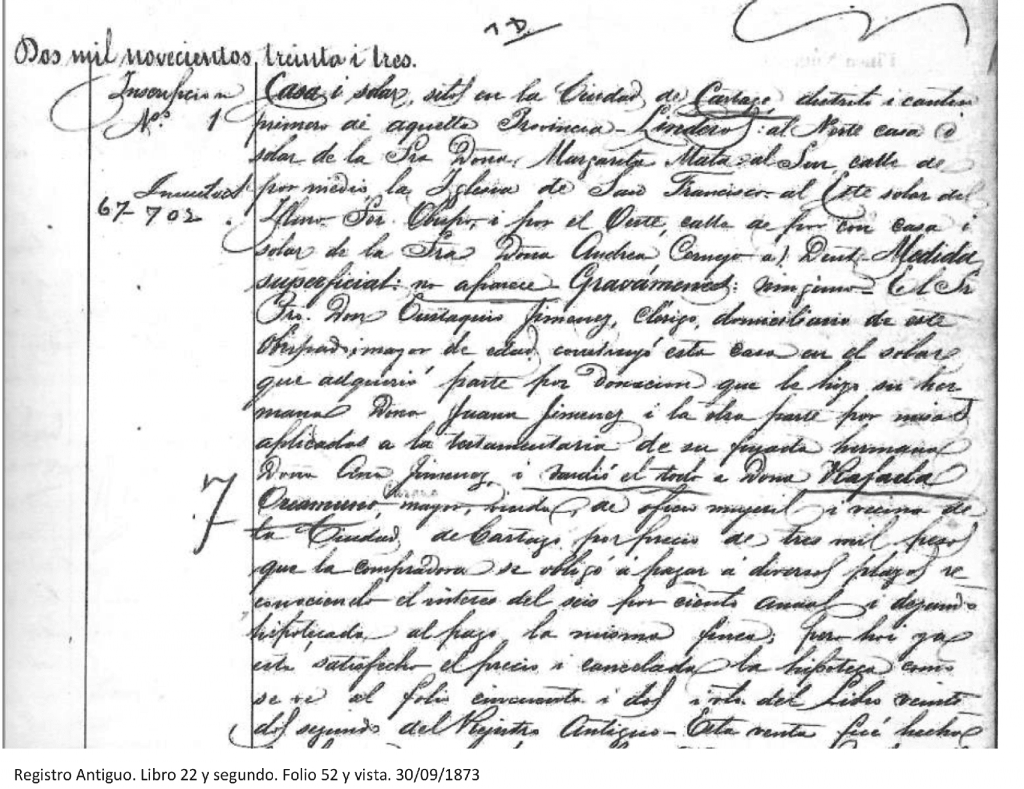 1 D.
Dos mil novecientos treinta i tres.
Inscripcion
Nº 1
67-702
Casa i solar, sitos en la Ciudad de Cartago distrito i canton
primero de aquella Provincia - Linderos: al Norte casa i
solar de la Sra Doña Margarita Mata: al Sur, calle de
por medio la Iglesia de San Francisco: al Este solar del
Illmo. Sor. Obispo, i por el Oeste, calle de por con casa i
solar de la Sra Doña Andrea Cornejo a Dent. Medida
superficial: no aparece - Gravámenes: ninguno - El Sr
Pro. Don Eustaquio Jimenez, Clerigo, domiciliario de este
Obispado, mayor de edad, construyó esta casa en el solar
que adquirió parte por Donacion que le hizo su her
mana Doña Juana Jimenez i la otra parte por misas
aplicadas a la testamentaria de su finada hermana
Doña Ana Jimenez, i vendió el todo a Doña Rafaela
7
Oreamuno mayor, viuda, de oficio mujeril i vecina de
la Ciudad de Cartago por precio de tres mil pesos
que la compradora se obligó a pagar a diversos plazos re
conociendo el interes del seis por ciento anual i dejando
hipotecada al pago la misma finca; pero hoi ya
está satisfecho el precio i cancelada la hipoteca como
se ve al folio cincuenta i dos i vto. del Libro veinte
dos segundo del Rejistro Antiguo - Esta venta fué hecha
Registro Antiguo. Libro 22 y segundo. Folio 52 y vista. 30/09/1873